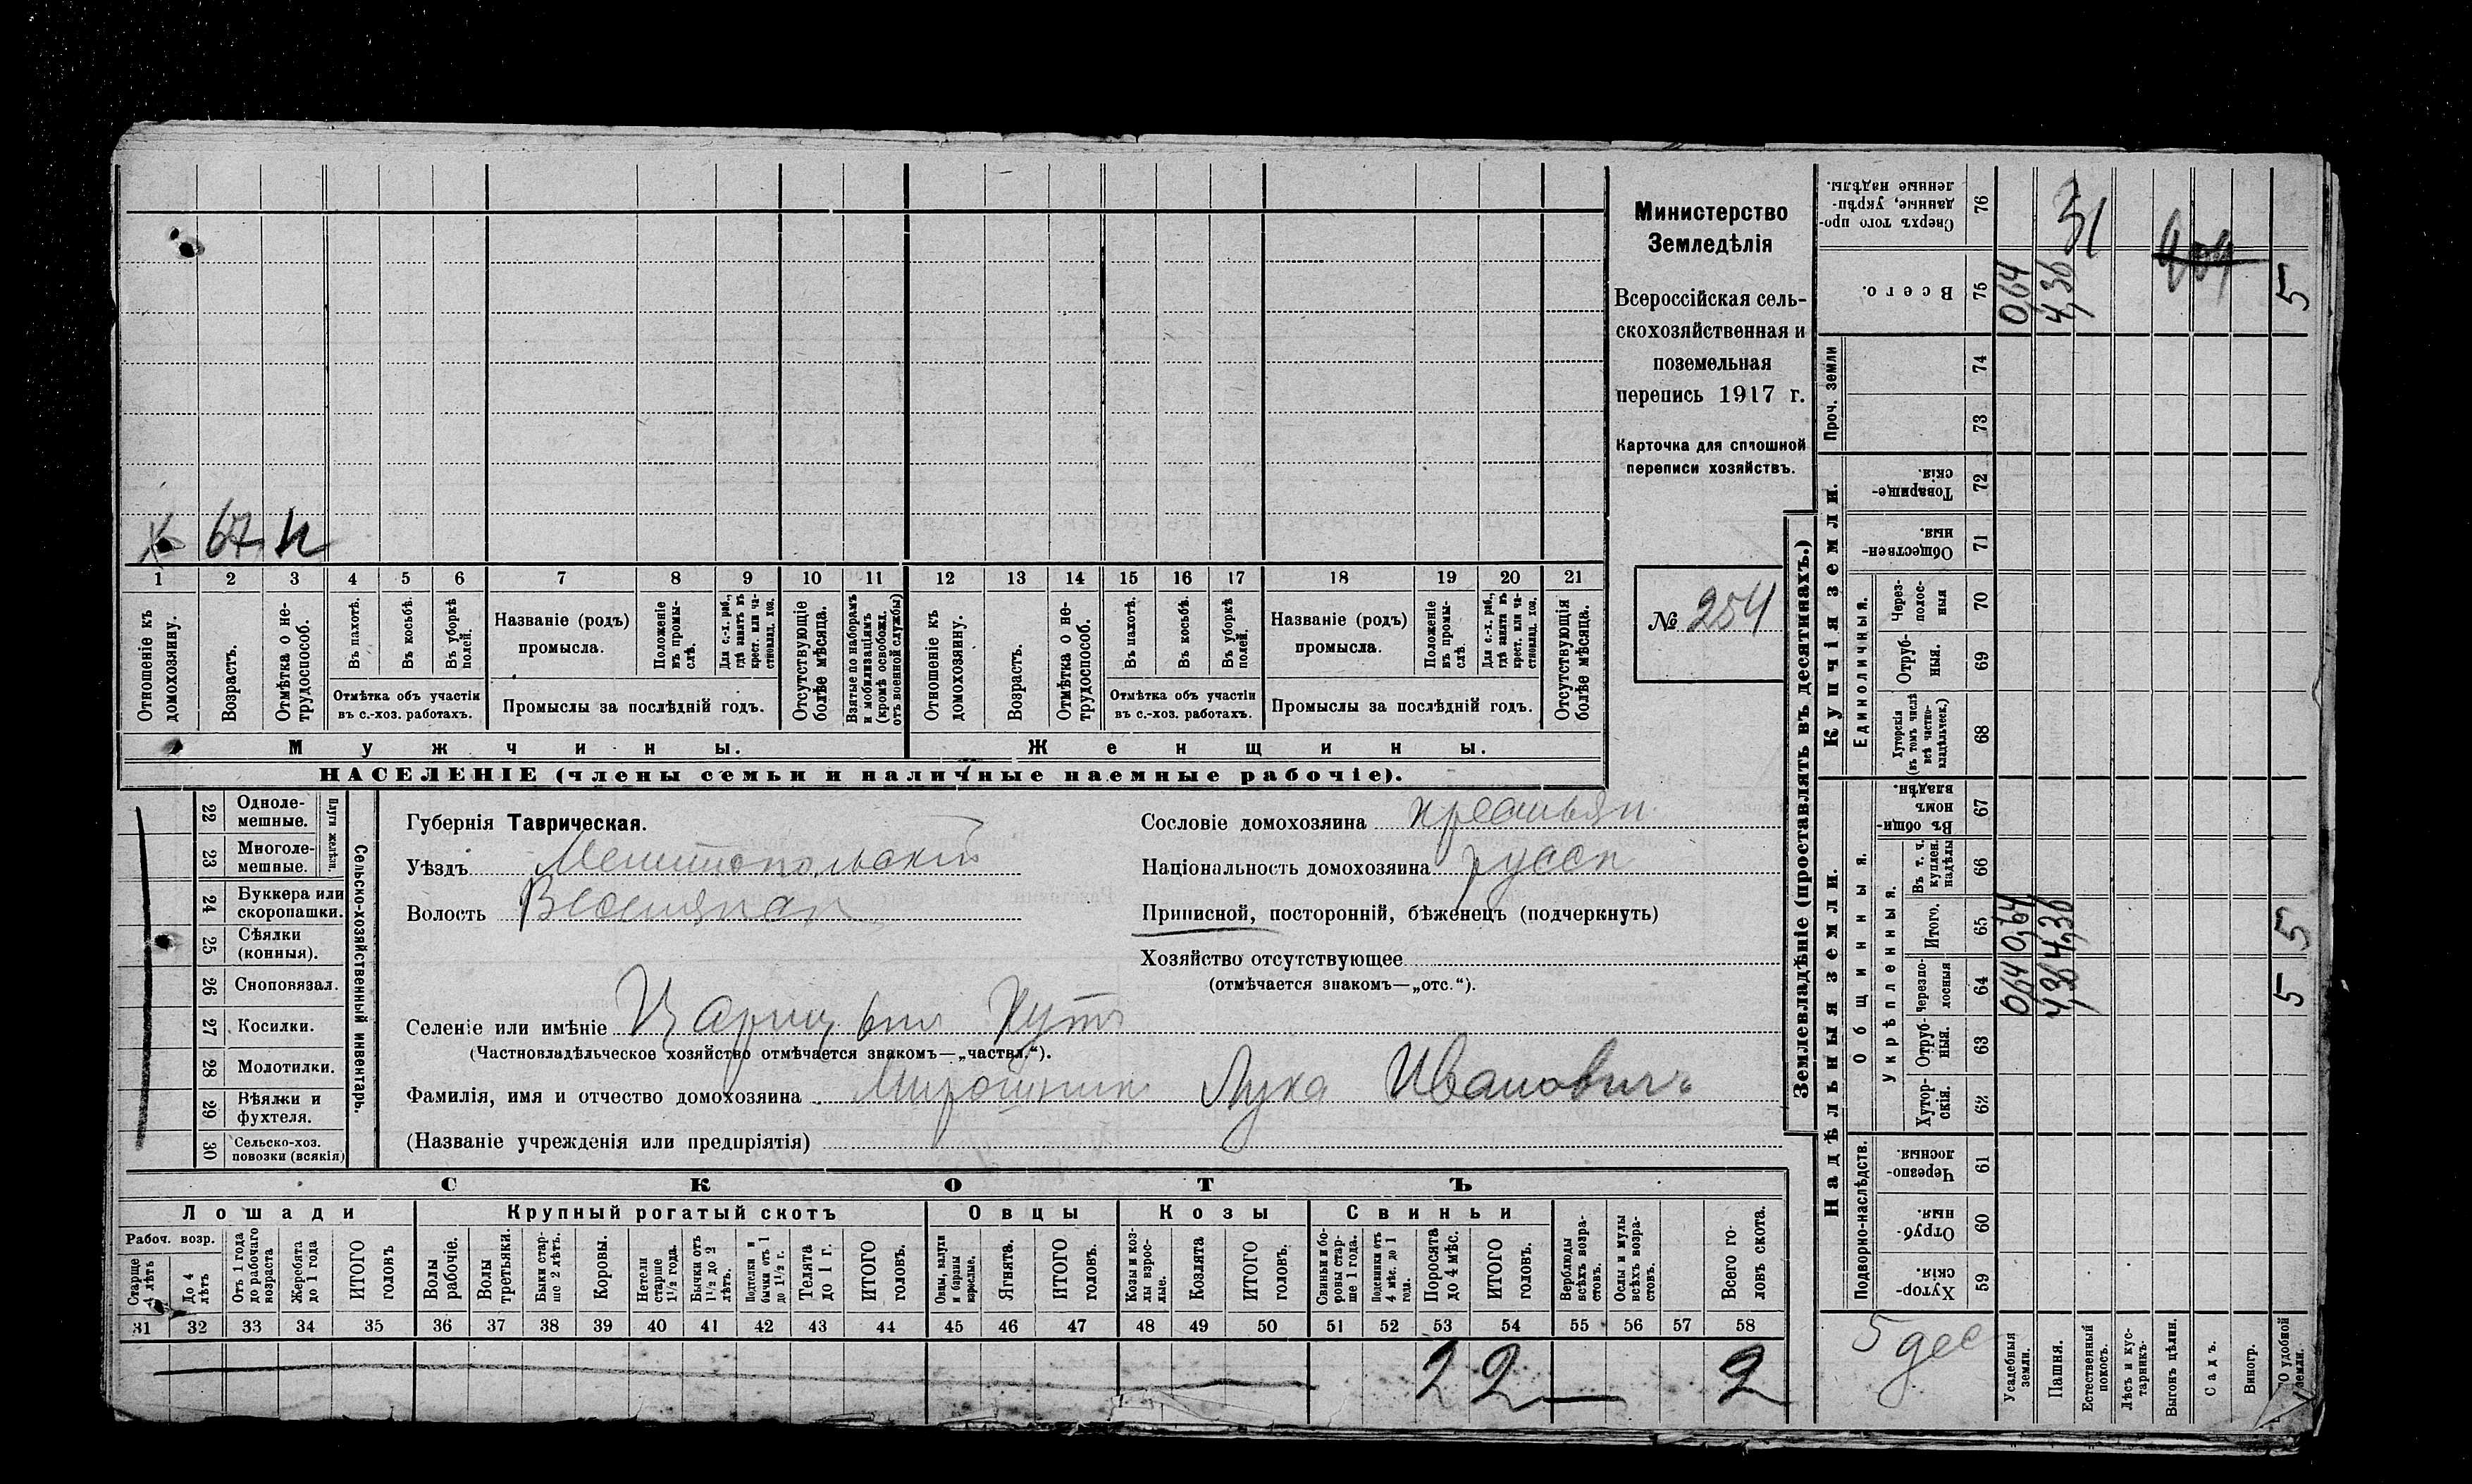 Х 67 н
1 2 3 4 5 6 7 8 9 10 11 12 13 14 15 16 17 18 19 20 21
Отношеніе къ домохозяину.
Возрастъ.
Отмѣтка о нетрудоспособ.
Въ пахотѣ.
Въ косьбѣ.
Въ уборкѣ полей.
Отмѣтка объ участіи
въ с.-хоз. работахъ.
Названіе (родъ)
промысла.
Положеніе въ промыслѣ.
Для с.-х. раб., гдѣ занятъ въ крест. или частновлад. хоз.
Промыслы за послѣдній годъ.
Отсутствующіе болѣе мѣсяца.
Взятые по наборамъ и мобилизаціямъ (кромѣ освобожд. отъ военной службы)
Отношеніе къ домохозяину.
Возрастъ.
Отмѣтка о нетрудоспособ.
Въ пахотѣ.
Въ косьбѣ.
Въ уборкѣ полей.
Отмѣтка объ участіи
въ с.-хоз. работахъ.
Названіе (родъ)
промысла.
Положеніе въ промыслѣ.
Для с.-х. раб., гдѣ занята въ крест. или частновлад. хоз.
Промыслы за послѣдній годъ.
Отсутствующія болѣе мѣсяца.
Мужчины. Женщины.
НАСЕЛЕНІЕ (члены семьи и наличные наемные рабочіе).
Министерство
Земледѣлія
Всероссійская сель-
скохозяйственная и
поземельная
перепись 1917 г.
Карточка для сплошной
переписи хозяйствъ.
№ 254
22 Однолемешные.
23 Многолемешные.
Плуги желѣзн.
24 Буккера или скоропашки.
25 Сѣялки (конныя).
26 Сноповязал.
27 Косилки.
28 Молотилки.
29 Вѣялки и фухтеля.
30 Сельско-хоз. повозки (всякія)
Сельско-хозяйственный инвентарь.
Губернія Таврическая.
Уѣздъ Мелитопольскій
Волость Веселянск
Сословіе домохозяина крестьян.
Національность домохозяина русск
Приписной, посторонній, бѣженецъ (подчеркнуть)
Хозяйство отсутствующее
(отмѣчается знакомъ—„отс.“).
Селеніе или имѣніе Царицынъ Кутъ
(Частновладѣльческое хозяйство отмѣчается знакомъ—„частвл.“).
Фамилія, имя и отчество домохозяина Мирошник Лука Ивановичъ
(Названіе учрежденія или предпріятія)
СКОТЪ
Лошади Крупный рогатый скотъ Овцы Козы Свиньи
Рабоч. возр.
Старше 4 лѣтъ
До 4 лѣтъ
Отъ 1 года до рабочаго возраста
Жеребята до 1 года
ИТОГО головъ
Волы рабочіе.
Волы третьяки.
Быки старше 2 лѣтъ.
Коровы.
Нетели старше 1½ года.
Бычки отъ 1½ до 2 лѣтъ.
Подтелки и бычки отъ 1 до 1½ г.
Телята до 1 г.
ИТОГО головъ.
Овцы, валухи и бараны взрослые.
Ягнята.
ИТОГО головъ.
Козы и козлы взрослые.
Козлята
ИТОГО головъ.
Свиньи и боровы старше 1 года.
Подсвинки отъ 4 мѣс. до 1 года.
Поросята до 4 мѣс.
ИТОГО головъ.
Верблюды всѣхъ возрастовъ.
Ослы и мулы всѣхъ возрастовъ.
Всего головъ скота.
31 32 33 34 35 36 37 38 39 40 41 42 43 44 45 46 47 48 49 50 51 52 53 54 55 56 57 58
2 2 2
Землевладѣніе (проставлять въ десятинахъ.)
Надѣльныя земли.
Купчія земли.
Проч. земли
Подворно-наслѣдств.
Общинныя.
Укрѣпленныя.
Единоличныя.
Сверхъ того проданные, укрѣпленные надѣлы. 76
Всего. 75
74
73
Товарищескія. 72
Общественныя. 71
Черезполосныя 70
Отрубныя. 69
Хуторскія (въ томъ числѣ всѣ частновладѣльческ.) 68
Въ общинномъ владѣн. 67
Въ т. ч. куплен. надѣлы 66
Итого. 65
Черезполосныя 64
Отрубныя. 63
Хуторскія. 62
Черезполосныя. 61
Отрубныя. 60
Хуторскія. 59
31
0,64 4,36 5
0,64 4,36 5
0,64 4,36 5
5 дес
Усадебныя земли.
Пашня.
Естественный покосъ.
Лѣсъ и кустарникъ.
Выгонъ цѣлин.
Садъ.
Виногр.
удобной земли.